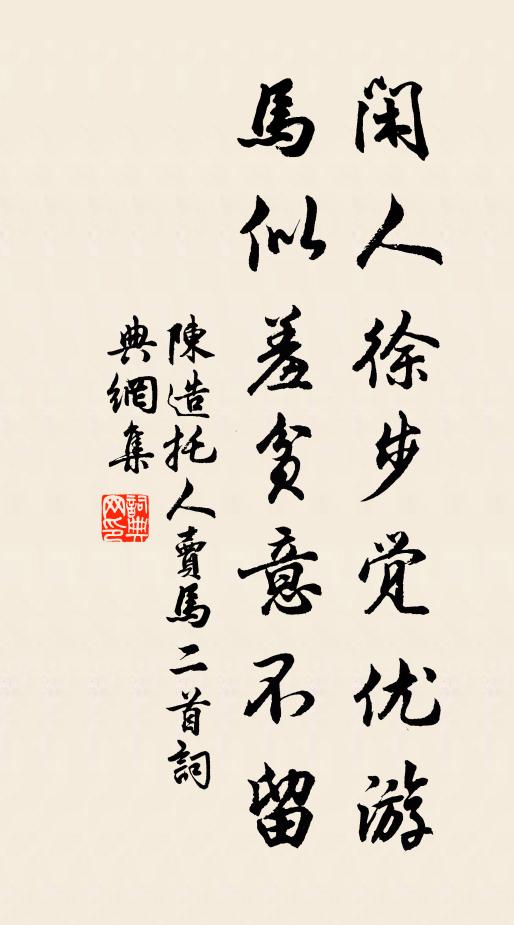 闲人徐步觉优游
馬似羞贫意不留
陳造托人賣馬二首詞
典網集
詞典
网印